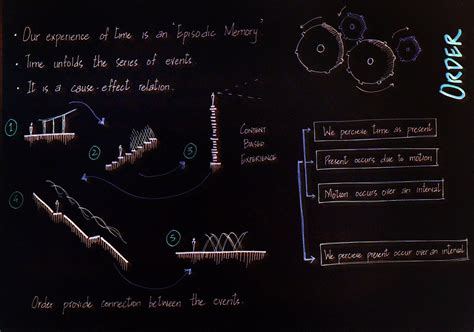 • Our experience of time is an "Episodic Memory"
• Time unfolds the series of events.
• It is a cause-effect relation.
ORDER
1
2
3
CONTENT
BASED
EXPERIENCE
4
5
Order provide connection between the events.
We percieve time as present
Present occurs due to motion
Motion occurs over an interval
We percieve present occur over an interval